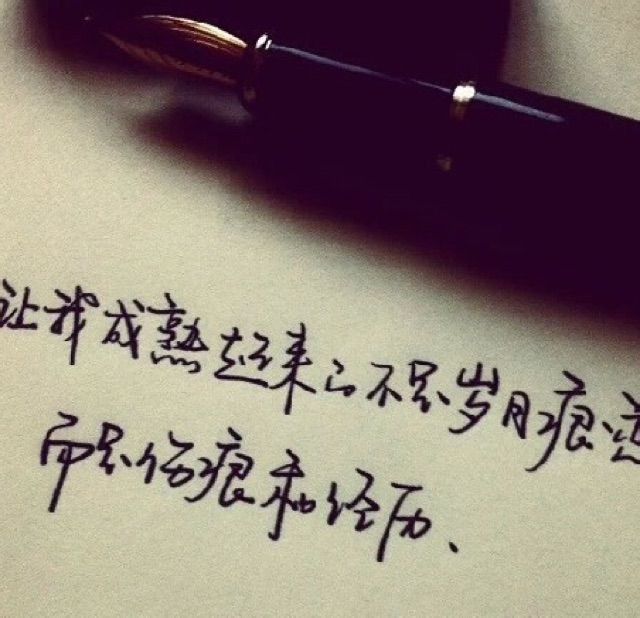 让我成熟起来的不是岁月痕迹
而是伤痕和经历、